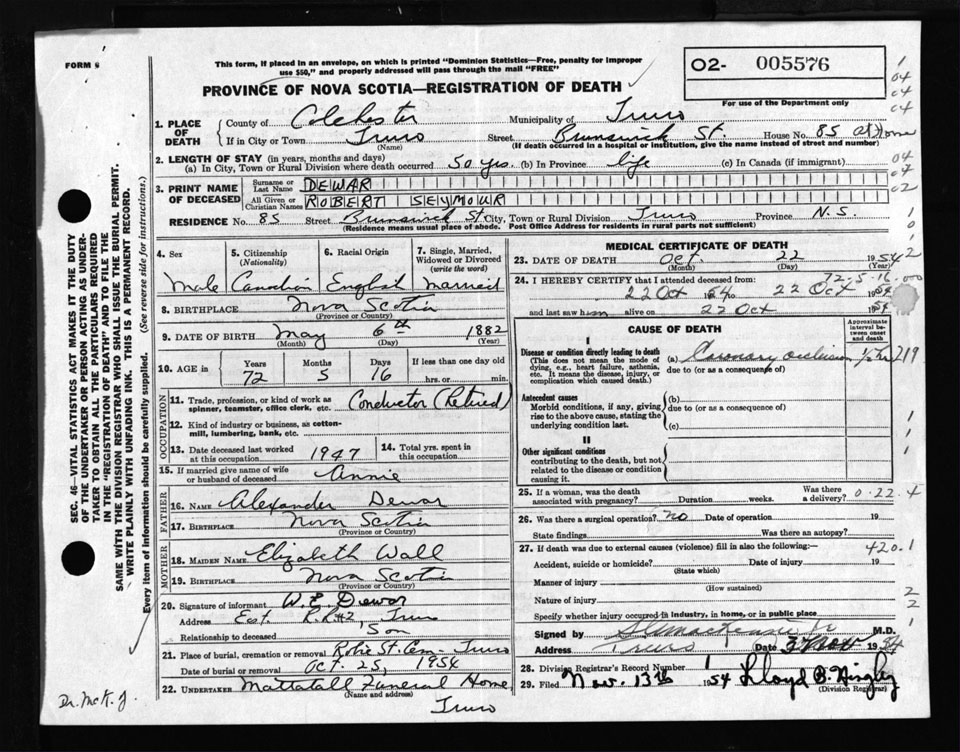 FORM 8
This form, if placed in an envelope, on which is printed "Dominion Statistics—Free, penalty for improper
use $50," and properly addressed will pass through the mail "FREE"
PROVINCE OF NOVA SCOTIA—REGISTRATION OF DEATH
O2- 005576
For use of the Department only
1. PLACE OF DEATH
County of Colchester Municipality of Truro
If in City or Town Truro Street Brunswick St. House No. 85 at Home
(Name) (If death occurred in a hospital or institution, give the name instead of street and number)
2. LENGTH OF STAY (in years, months and days)
(a) In City, Town or Rural Division where death occurred 50 yrs. (b) In Province life (c) In Canada (if immigrant)
3. PRINT NAME OF DECEASED
Surname or Last Name DEWAR
All Given or Christian Names ROBERT SEYMOUR
RESIDENCE No. 85 Street Brunswick St City, Town or Rural Division Truro Province N.S.
(Residence means usual place of abode. Post Office Address for residents in rural parts not sufficient)
4. Sex
Male
5. Citizenship (Nationality)
Canadian
6. Racial Origin
English
7. Single, Married, Widowed or Divorced (write the word)
Married
8. BIRTHPLACE Nova Scotia
(Province or Country)
9. DATE OF BIRTH May 6th 1882
(Month) (Day) (Year)
10. AGE in Years Months Days If less than one day old
72 5 16 hrs. or min.
OCCUPATION
11. Trade, profession, or kind of work as spinner, teamster, office clerk, etc. Conductor (Retired)
12. Kind of industry or business, as cotton-mill, lumbering, bank, etc.
13. Date deceased last worked at this occupation 1947
14. Total yrs. spent in this occupation
15. If married give name of wife or husband of deceased Annie
FATHER
16. NAME Alexander Dewar
17. BIRTHPLACE Nova Scotia
(Province or Country)
MOTHER
18. MAIDEN NAME Elizabeth Wall
19. BIRTHPLACE Nova Scotia
(Province or Country)
20. Signature of informant W. E. Dewar
Address East R.R#2, Truro
Relationship to deceased Son
21. Place of burial, cremation or removal Robie St. Cem - Truro
Date of burial or removal Oct. 25, 1954
22. UNDERTAKER Mattatall Funeral Home
(Name and address)
Truro
MEDICAL CERTIFICATE OF DEATH
23. DATE OF DEATH Oct. 22 1954
(Month) (Day) (Year)
72-5-16
24. I HEREBY CERTIFY that I attended deceased from:
22 Oct 1954 to 22 Oct 1954
and last saw him alive on 22 Oct 1954
CAUSE OF DEATH
Approximate interval between onset and death
I
Disease or condition directly leading to death
(This does not mean the mode of dying, e.g., heart failure, asthenia, etc. It means the disease, injury, or complication which caused death.)
(a) Coronary occlusion 1/2 hr
due to (or as a consequence of)
Antecedent causes
Morbid conditions, if any, giving rise to the above cause, stating the underlying condition last.
(b)
due to (or as a consequence of)
(c)
II
Other significant conditions
contributing to the death, but not related to the disease or condition causing it.
25. If a woman, was the death associated with pregnancy? Duration weeks. Was there a delivery? 0.22.4
26. Was there a surgical operation? no Date of operation 19
State findings Was there an autopsy?
27. If death was due to external causes (violence) fill in also the following: 420.1
Accident, suicide or homicide? Date of injury 19
(State which)
Manner of injury
(How sustained)
Nature of injury
Specify whether injury occurred in industry, in home, or in public place
Signed by M.D.
Address Truro Date 3 Nov 1954
28. Division Registrar's Record Number
29. Filed Nov. 13th 1954 Lloyd B.
(Division Registrar)
SEC. 46—VITAL STATISTICS ACT MAKES IT THE DUTY
OF THE UNDERTAKER OR PERSON ACTING AS UNDER-
TAKER TO OBTAIN ALL THE PARTICULARS REQUIRED
IN THE "REGISTRATION OF DEATH" AND TO FILE THE
SAME WITH THE DIVISION REGISTRAR WHO SHALL ISSUE THE BURIAL PERMIT.
WRITE PLAINLY WITH UNFADING INK. THIS IS A PERMANENT RECORD.
Every item of information should be carefully supplied. (See reverse side for instructions.)
Dr. McK. J.